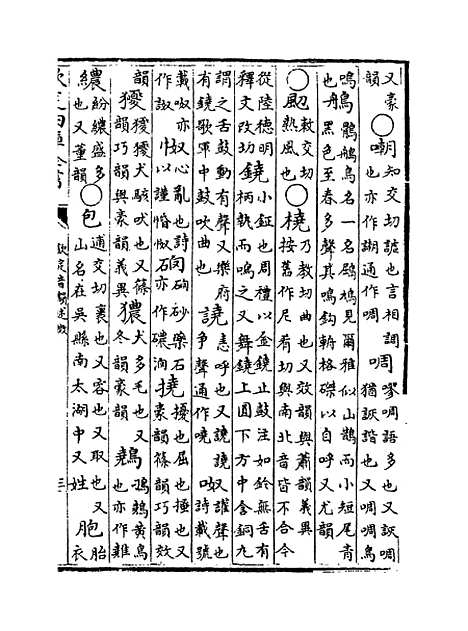 又豪韻○嘲知交切謔也言相調也亦作謿通作啁啁嘐啁語多也又詼啁猶詼諧也又啁啁鳥
鳴鵃鶻鵃鳥名一名鶌鳩見爾雅似山鵲而小短尾青黑色至春多聲其鳴鉤輈格磔以自呼又尤韻
也舟
○䫜敎交切熱風也○橈乃教切曲也又效韻與蕭韻義異按舊作尼肴切與南北音皆不合今
從陸德明釋文改切鐃小鉦也周禮以金鐃止鼓注如鈴無舌有柄執而鳴之又舞鐃上圓下方中含銅丸
謂之舌鼓動有聲又樂府有鐃歌軍中鼓吹曲也譊恚呼也又譊譊爭聲通作嘵呶讙聲也詩載號
載呶亦作詉㺜心亂也詩以謹惛怓䂇䂇砂藥石亦作硇撓擾也屈也搔也又豪韻篠韻巧韻效
韻獿獿獿犬駭吠也又篠韻巧韻與豪韻義異獳犬多毛也又冬韻豪韻鷯鴻鷯黃鳥也亦作雞
繷紛繷盛多也又董韻○包逋交切裹也又容也又取也又山名在吳縣南太湖中又姓胞胎衣
欽定四庫全書
欽定音韻述微
三